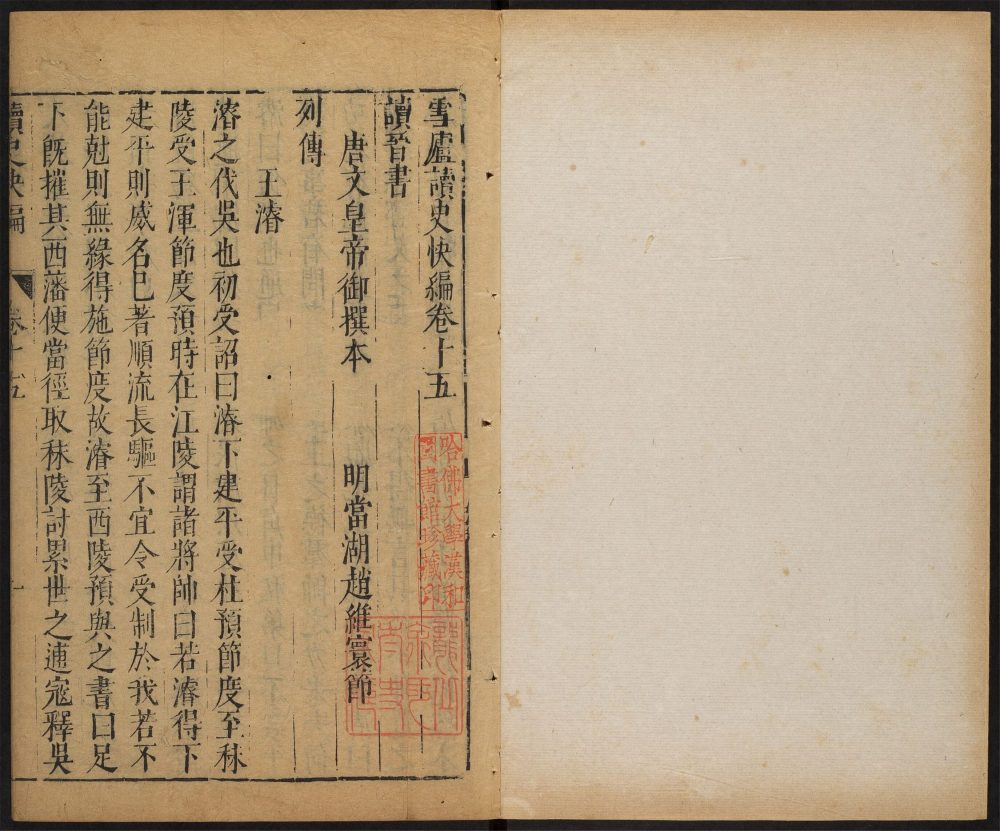 雪廬讀史快編卷十五
讀晉書
唐文皇帝御撰本 明當湖趙維寰節
列傳
王濬
濬之伐吳也初受詔曰濬下建平受杜預節度至秣
陵受王渾節度預時在江陵謂諸將帥曰若濬得下
建平則威名已著順流長驅不宜令受制於我若不
能尅則無緣得施節度故濬至西陵預與之書曰足
下旣摧其西藩便當徑取秣陵討累世之逋寇釋吳
讀史快編 卷十五 一
哈佛大學漢和
圖書館珍藏印